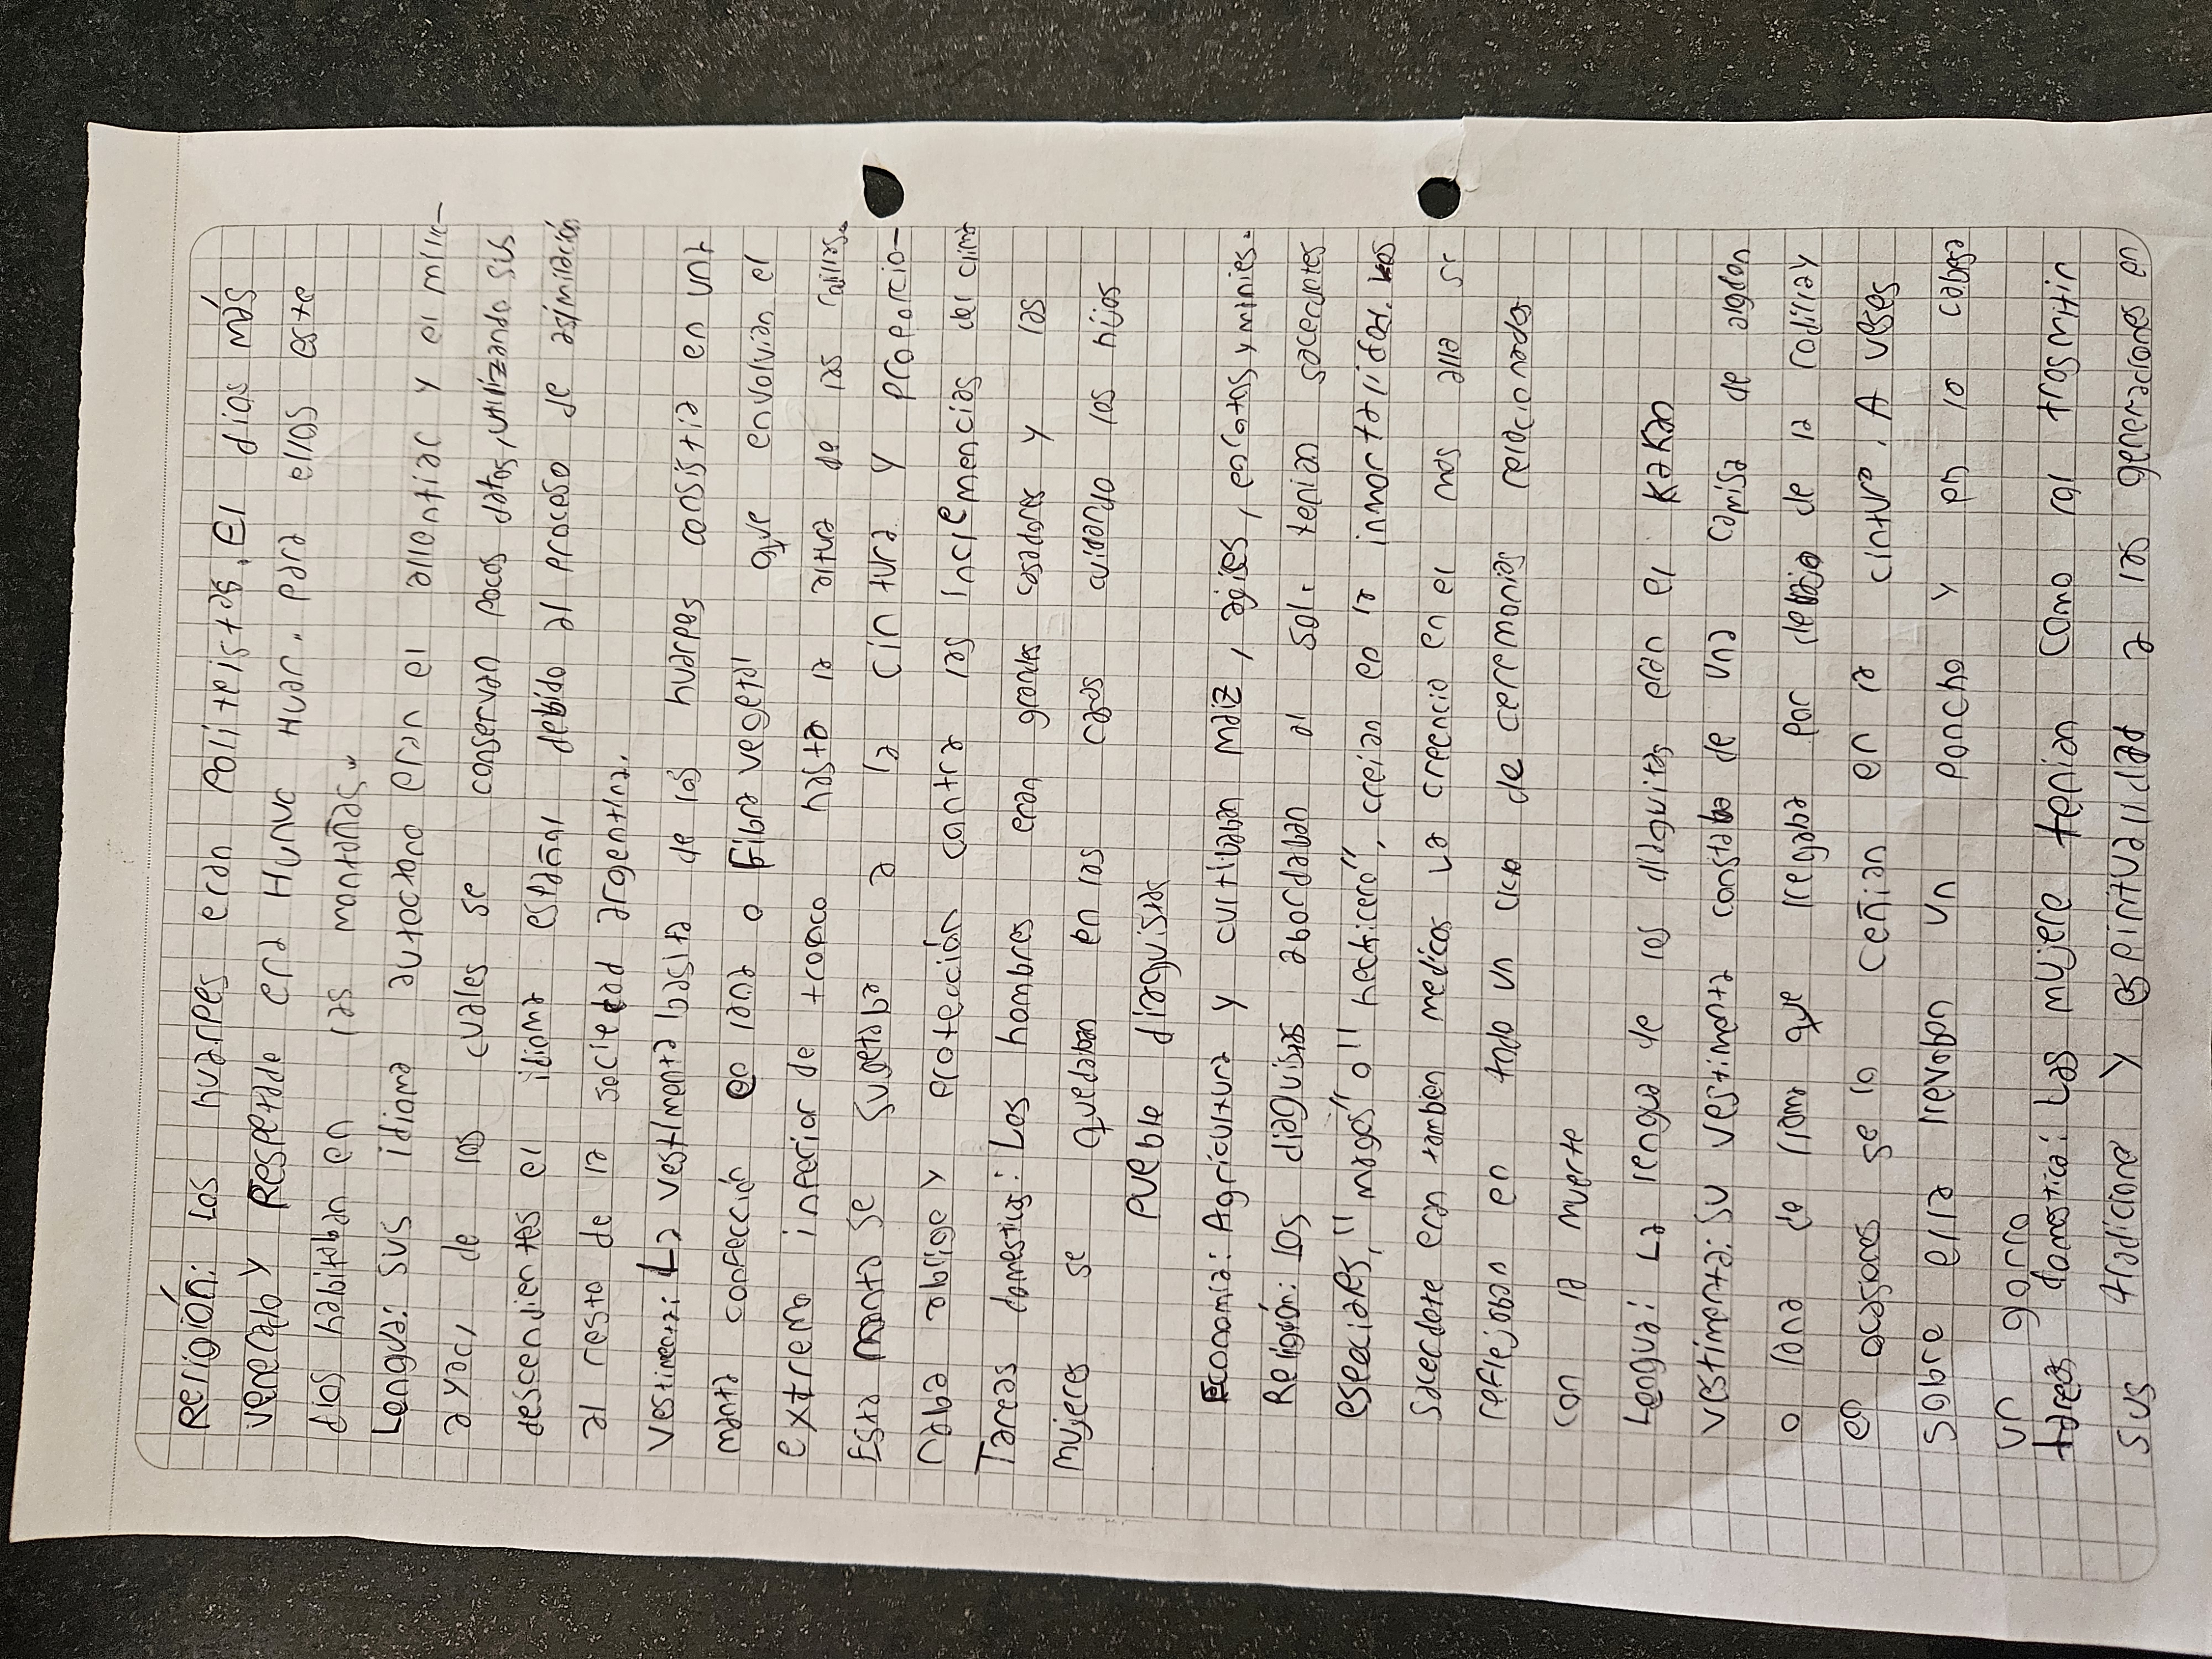 Religión: Los huarpes eran Polí+eis+as. El dios más
venerado y Respetade era Hunuc Huar. para ellos este
dios habitaban en las montañas.
Lengua: Sus idioma autoctono eran el allentiac y el millc-
ayac, de los cuales se conservan pocos datos, utilizando sus
descendientes el idioma español debido al proceso de asimilación
al resto de la sociedad argentina.
Vestimenta: La vestimenta basica de los huarpes consistia en una
manta confección en lana o Fibra vegetal que envolvian el
extremo inferior de tronco hasta la altura de las
Esta manta se sugetaba a la cintura y proporcio-
naba abrigo y protección contra las inclemencias del clima
Tareas domesticas: Los hombres eran grandes casadores y las
mujeres se quedaban en las casas cuidando los hijos
Pueble diaguistas
Economia: Agricultura y cultibaban maiz, ajises, porotos, y minies.
Religión: Los diaguistas abordaban al sol. tenian sacerdotes
especiales," magos" o" hechicero", creían en la inmortalidad. Los
Sacerdote eran tambien medicos La creencia en el mas alla se
reflejaban en todo un de ceremonias relacionados
con la muerte
Lengua: La lengua de los diaguitas eran el Kakan
Vestimenta: Su vestimenta constaba de una camisa de algdon
o lana de llama que llegaba por debajo de la rodilla y
en ocasiones se lo ceñian en la cintura. A veses
Sobre ella llevaban un poncho y en la cabesa
un gorro
tareas domestica: Las mujere tenian como rol trasmitir
sus tradicione y espiritualidad a las generaciones en